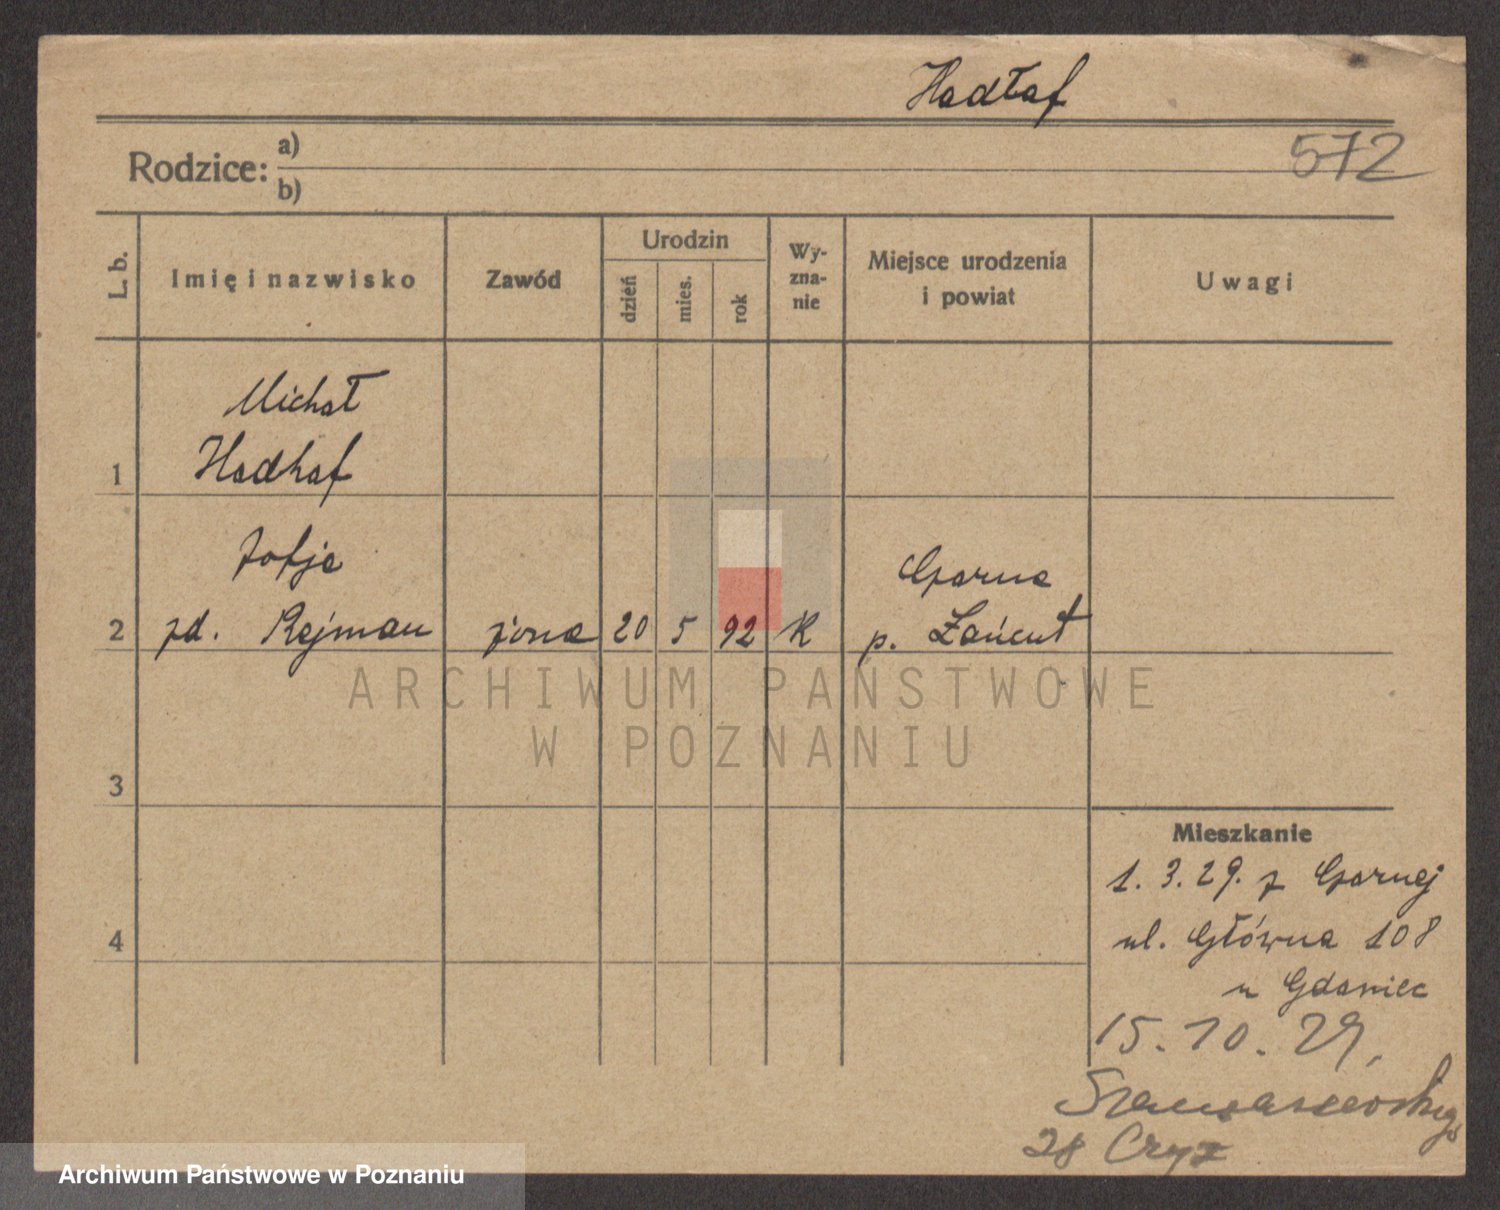 Hadłaf
572
Rodzice: a)
b)
L. b.
Imię i nazwisko
Zawód
Urodzin
dzień
mies.
rok
Wy-
zna-
nie
Miejsce urodzenia
i powiat
Uwagi
Michał
1 Hadhaf
Zofja
2 zd. Rejman żona 20 5 92 K
Czarna
p. Łańcut
3
4
Mieszkanie
1. 3. 29. z Czarnej
ul. Główna 108
u Gdaniec
15. 10. 29.
28 Cryz
ARCHIWUM PAŃSTWOWE
W POZNANIU
Archiwum Państwowe w Poznaniu